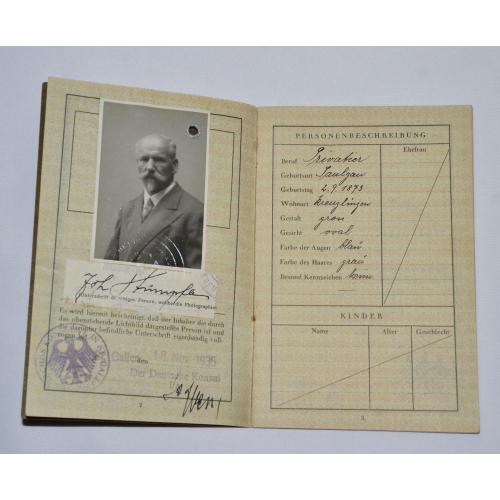 Joh. Stumpfle
Unterschrift d
Es wird hiermit bescheinigt, daß der Inhaber die durch
das obenstehende Lichtbild dargestellte Person ist und
die darunter befindliche Unterschrift eigenhändig voll-
zogen hat.
Gallen, den 18. Nov. 1935
Der Deutsche Konsul
2
PERSONENBESCHREIBUNG
Ehefrau
Beruf Privatier
Geburtsort Saulgau
Geburtstag 4.9.1873
Wohnort Kreuzlingen
Gestalt gross
Gesicht oval
Farbe der Augen blau
Farbe des Haares grau
Besond. Kennzeichen keine
KINDER
Name Alter Geschlecht
3